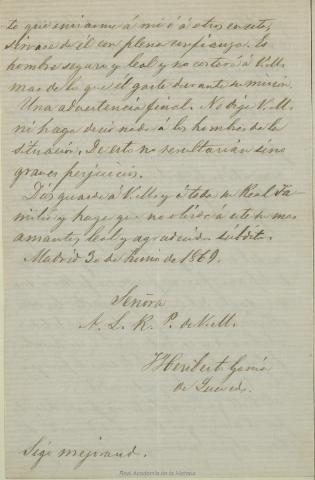 te que enviarme á mi ó á otros en este,
sirvase de él con plena confianza. Es
hombre seguro y leal y no costará á V.M.
mas de lo que él gaste durante su mision.
Una advertencia final. No deje V.M.
ni haga decir nada á los hombres de la
situacion. De esto no resultarian sino
graves perjuicios.
Dios guarde á V.M. y á toda su Real Fa-
milia y haga que no olvide á este su mas
amante, leal y agradecido súbdito.
Madrid 30 de Junio de 1869.
Señora
A. L. R. P. de V.M.
Heriberto García
de Quevedo.
Sigo mejorando.
Real Academia de la Historia